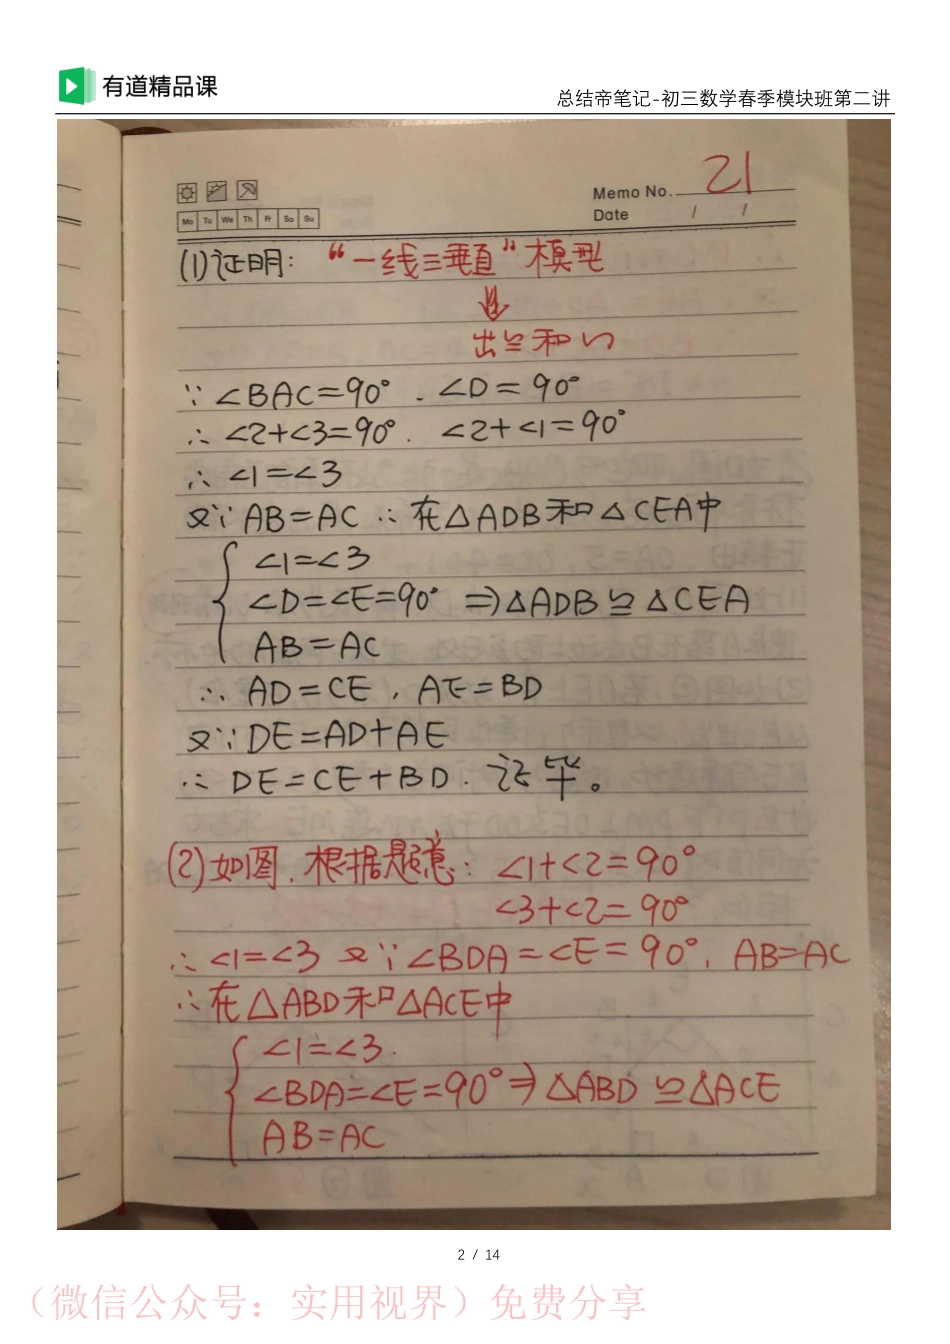 有道精品课
总结帝笔记-初三数学春季模块班第二讲
21
Memo No.
Mo Tu We Th Fr Sa Su
Date / /
(1)证明: “一线三垂直”模型
⇓
出≌和∽
∵∠BAC=90°. ∠D=90°
∴∠2+∠3=90°. ∠2+∠1=90°
∴∠1=∠3
又∵AB=AC ∴在△ADB和△CEA中
∠1=∠3
∠D=∠E=90° ⇒△ADB≌△CEA
AB=AC
∴AD=CE, AE=BD
又∵DE=AD+AE
∴DE=CE+BD. 证毕。
(2)如图. 根据题意: ∠1+∠2=90°
∠3+∠2=90°
∴∠1=∠3 又∵∠BDA=∠E=90°, AB=AC
∴在△ABD和△ACE中
∠1=∠3.
∠BDA=∠E=90°⇒△ABD≌△ACE
AB=AC
2 / 14
(微信公众号：实用视界）免费分享